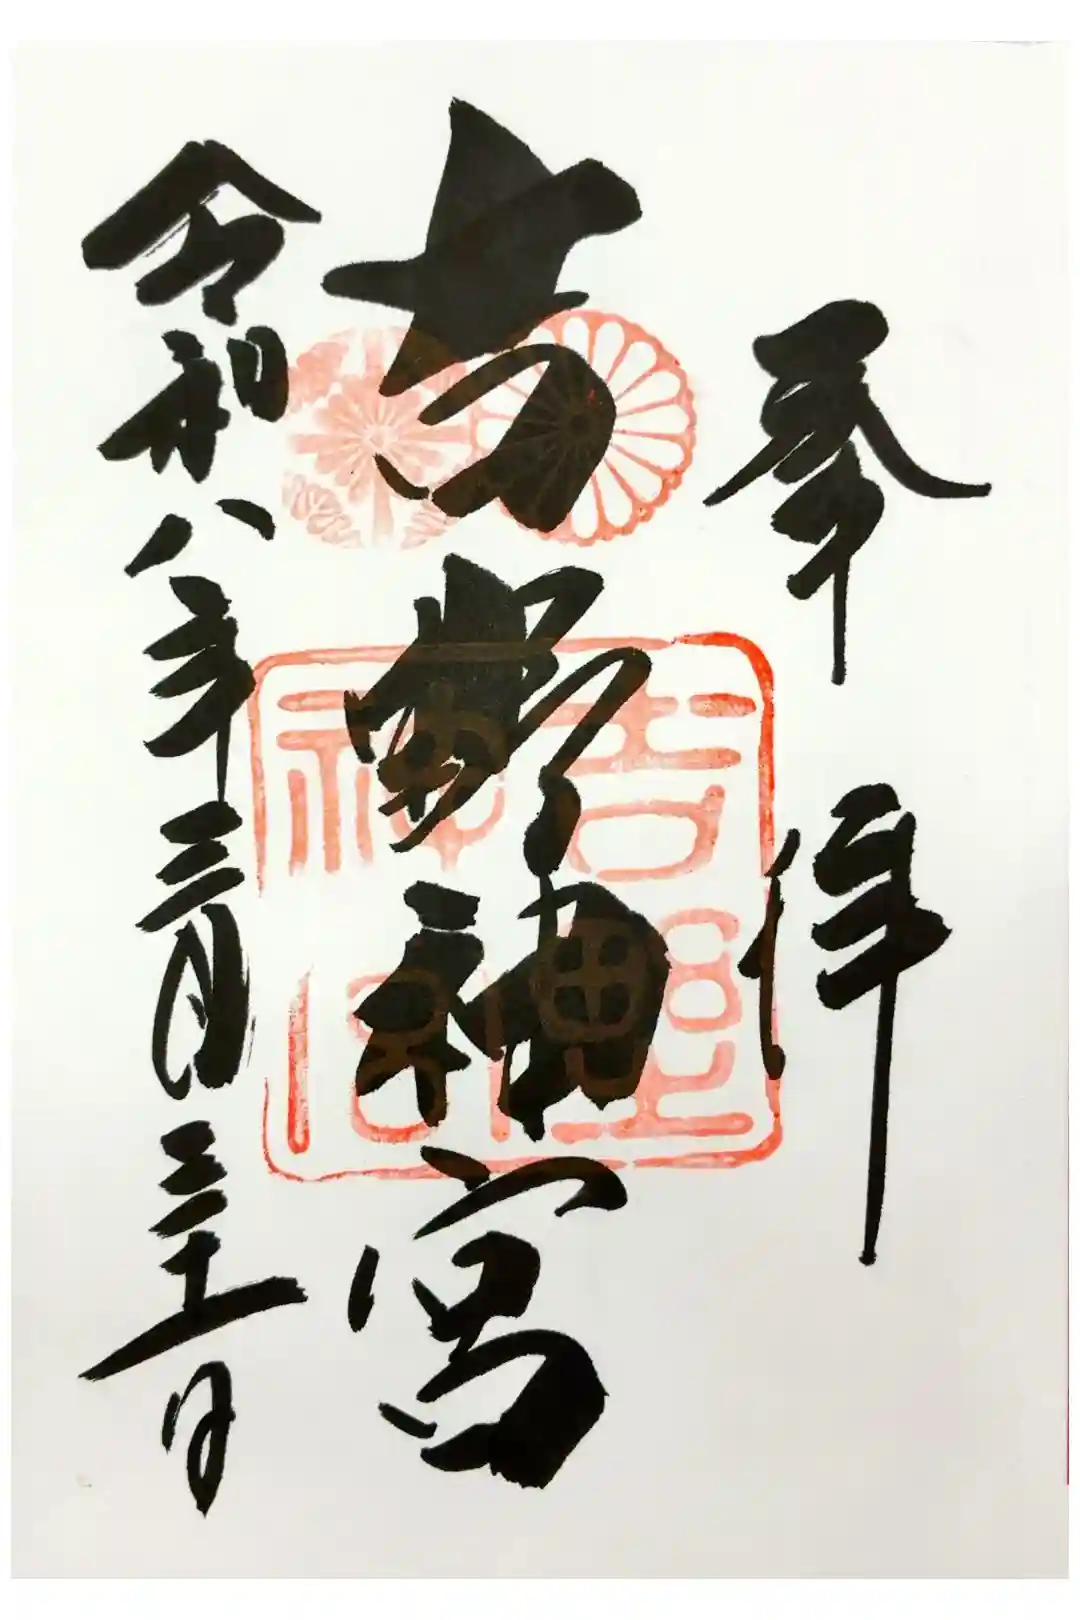 奉拝
吉野神宮
令和八年三月三十一日
吉野
神宮